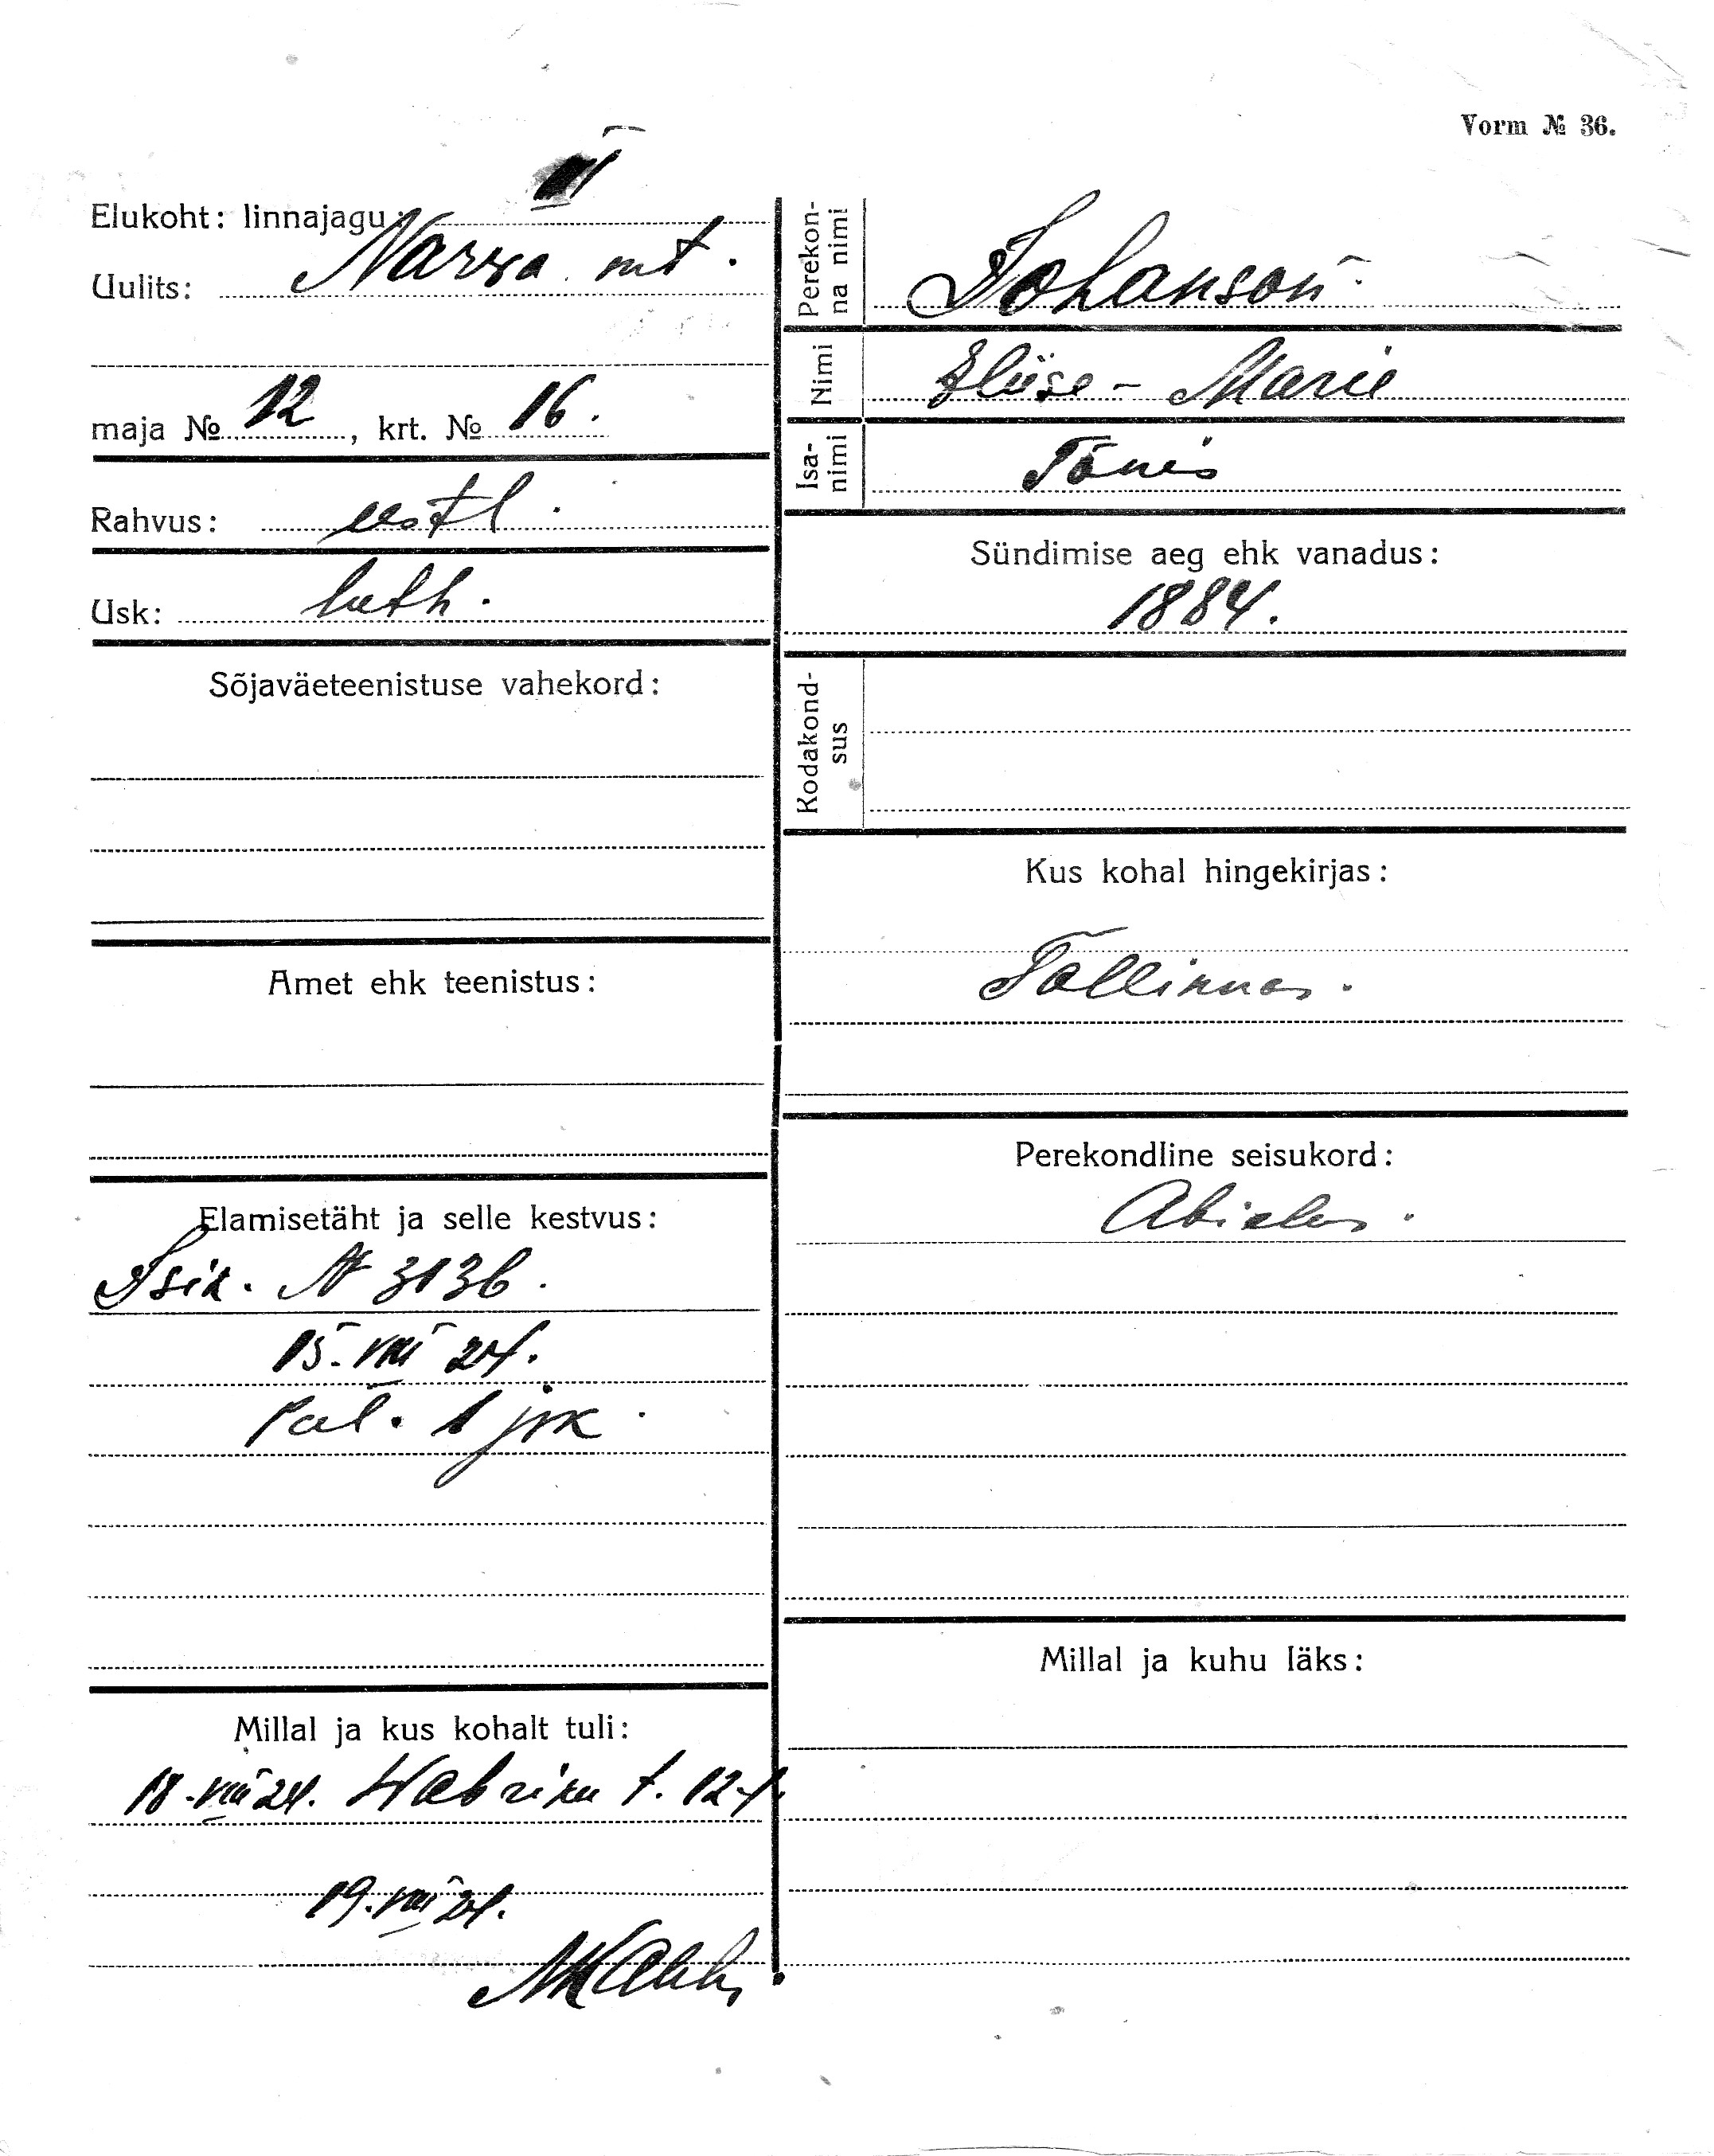 Vorm № 36.
Elukoht: linnajagu:
Uulits: Narva mt.
maja № 12, krt. № 16.
Rahvus: eestl.
Usk: luth.
Sõjaväeteenistuse vahekord:
Amet ehk teenistus:
Elamisetäht ja selle kestvus:
Isik. № 3136.
15. VIII 24.
pol. 1 jrk.
Millal ja kus kohalt tuli:
18. VIII 24. Wabriku t. 12-1.
19. VIII 24.
Perekonna nimi Johanson
Nimi Eliise-Marie
Isanimi Tõnis
Sündimise aeg ehk vanadus:
1884.
Kodakondsus
Kus kohal hingekirjas:
Tallinnas.
Perekondline seisukord:
Abielus.
Millal ja kuhu läks: